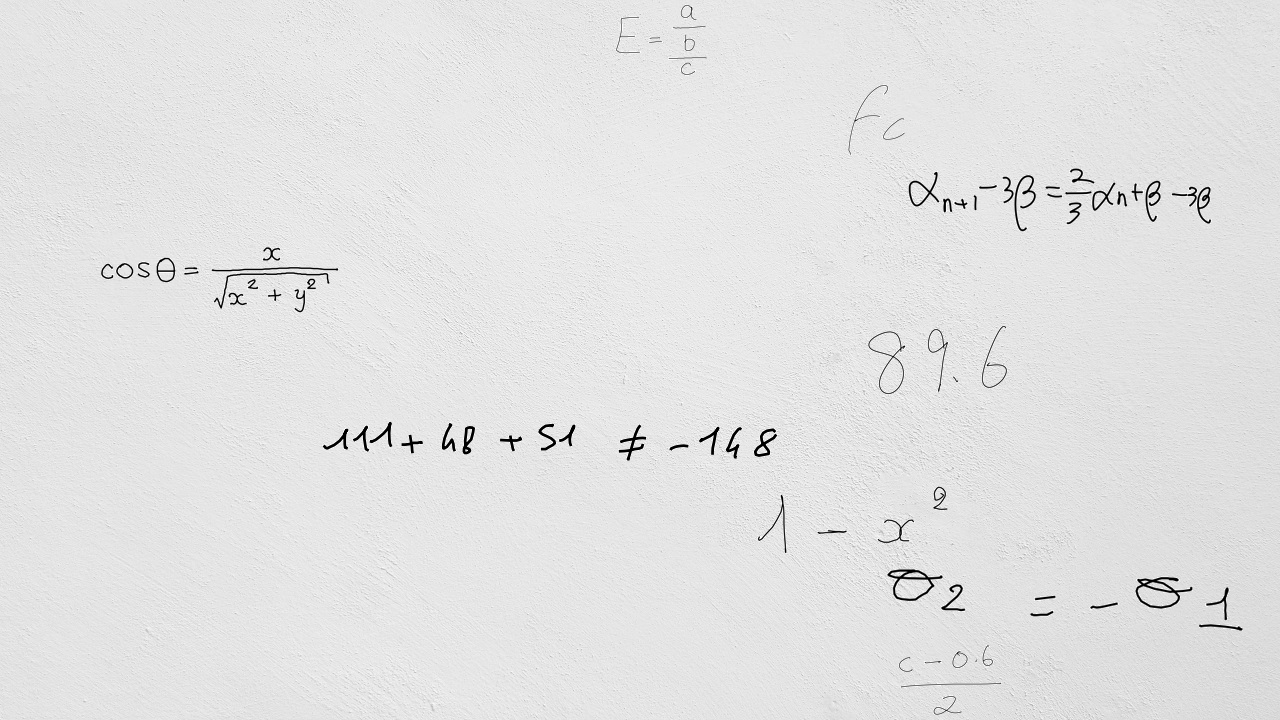 E = \frac{\frac{a}{b}}{c}
Fc
α_{n+1} - 3β = \frac{2}{3} α_n + β - 3β
cos θ = \frac{x}{\sqrt{x^2 + y^2}}
89.6
111 + 48 + 51 ≠ -148
1 - x^2
σ_2 = - σ_1
\frac{c - 0.6}{2}